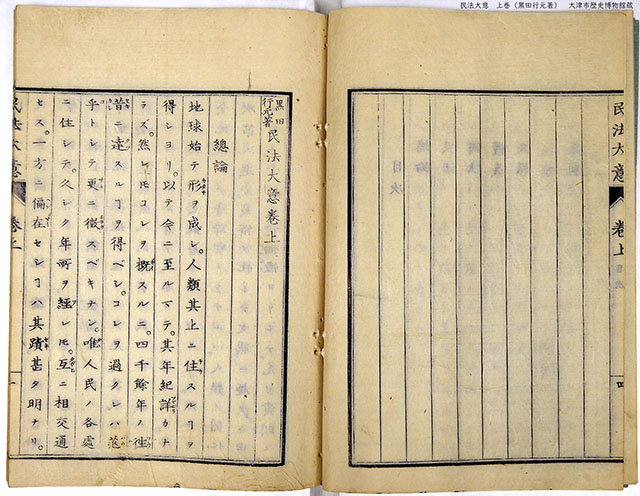 民法大意　上巻（黒田行元著）　大津市歴史博物館蔵
民法大意 卷上 目次 四
黒田行元著 民法大意卷上
總論
地球始テ形ヲ成シ。人類其上ニ住スルヿヲ
得シヨリ。以テ今ニ至ルマテ。其年紀詳カナ
ラズ。然レ𪜈コレヲ概スルニ。四千餘年ノ徃
昔ニ達スルヿヲ得ベシ。コレヲ過クレハ茫
乎トシテ更ニ徴スベキナシ。唯人民ノ各處
ニ住シテ。久シク年所ヲ經レ𪜈。互ニ相交通
セス。一方ニ偏在セシヿハ其蹟甚タ明ナリ。
民法大意 卷上 一